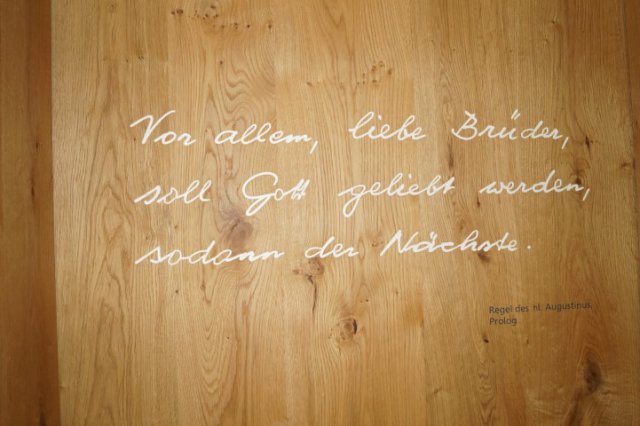 Vor allem, liebe Brüder,
soll Gott geliebt werden,
sodann der Nächste.
Regel des hl. Augustinus
Prolog